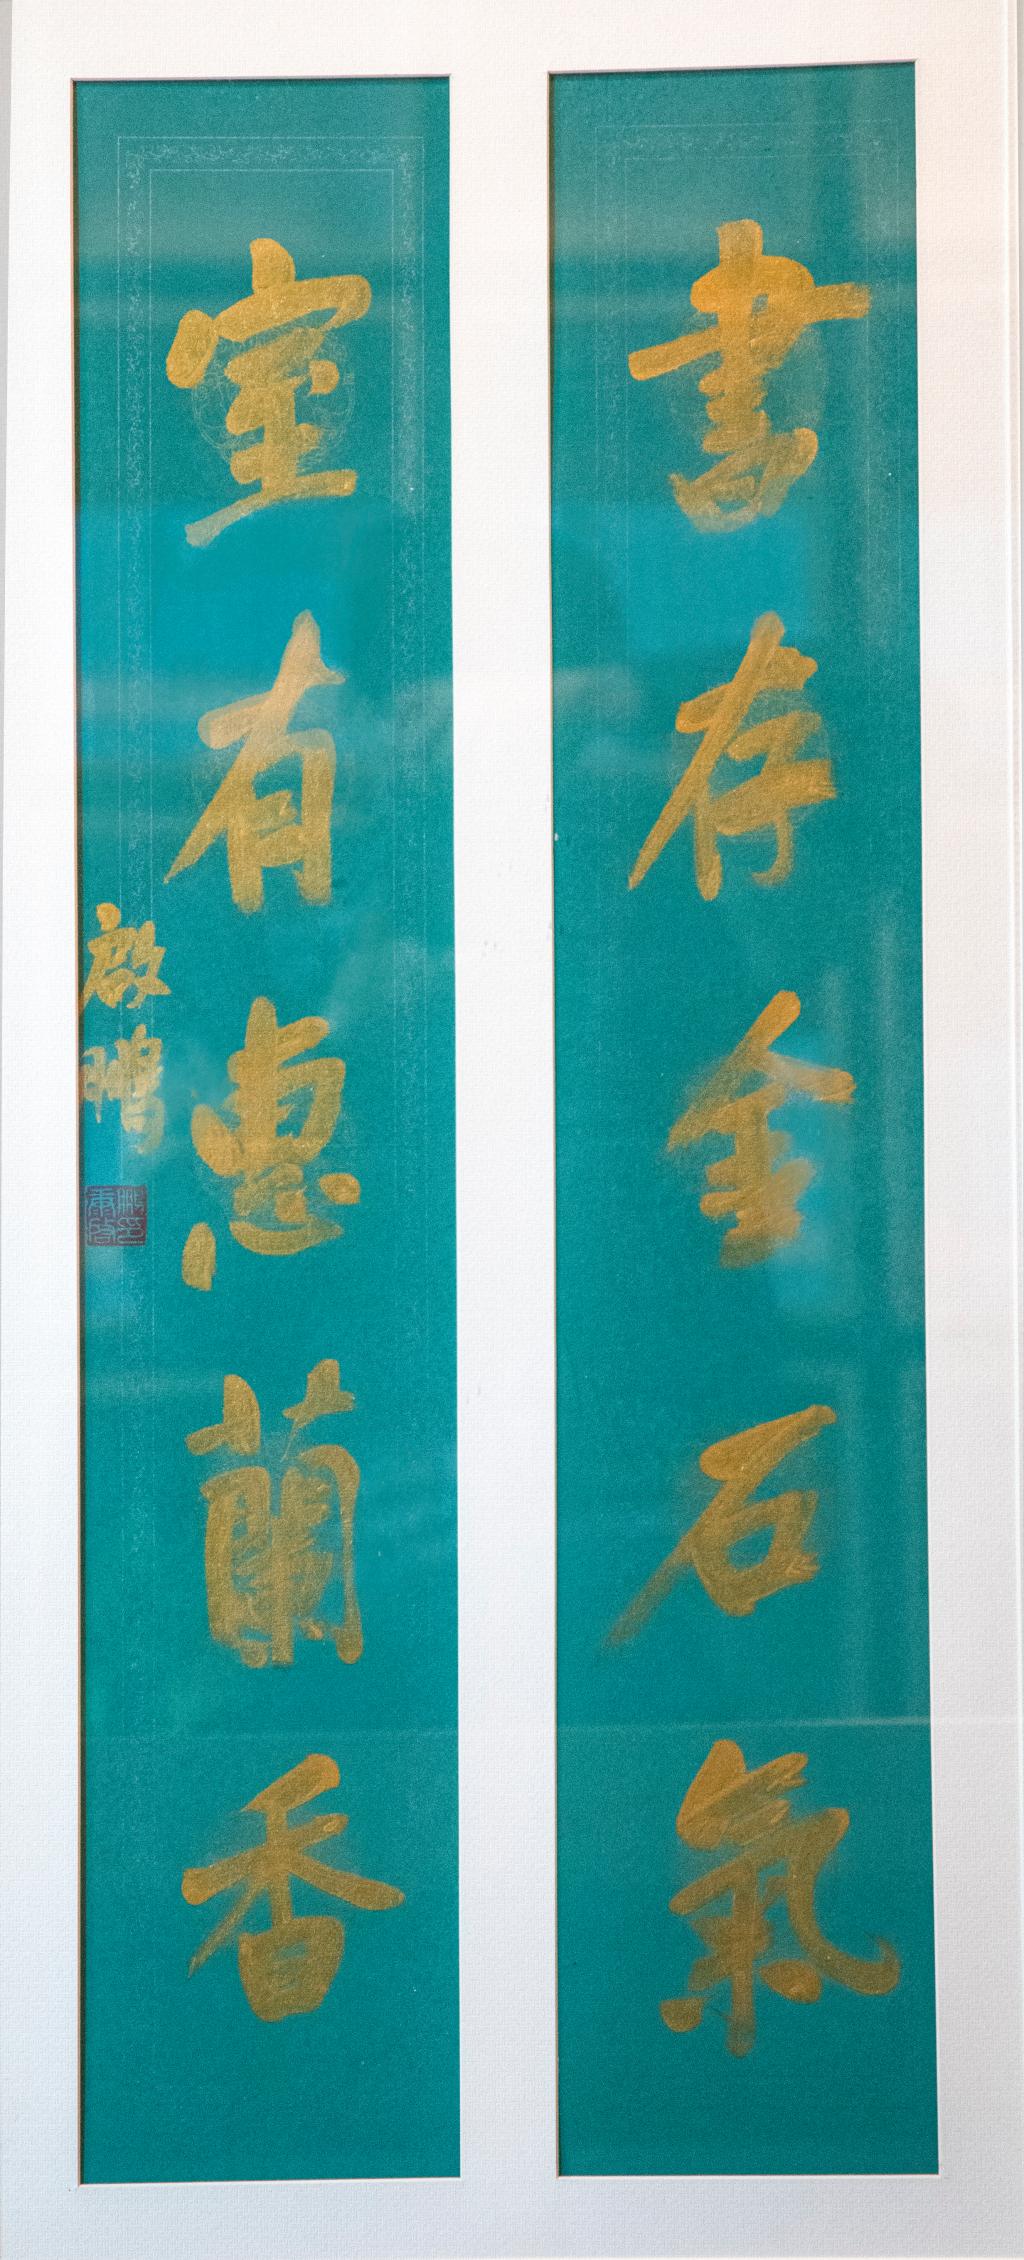 書存金石氣
室有惠蘭香
啟鵬